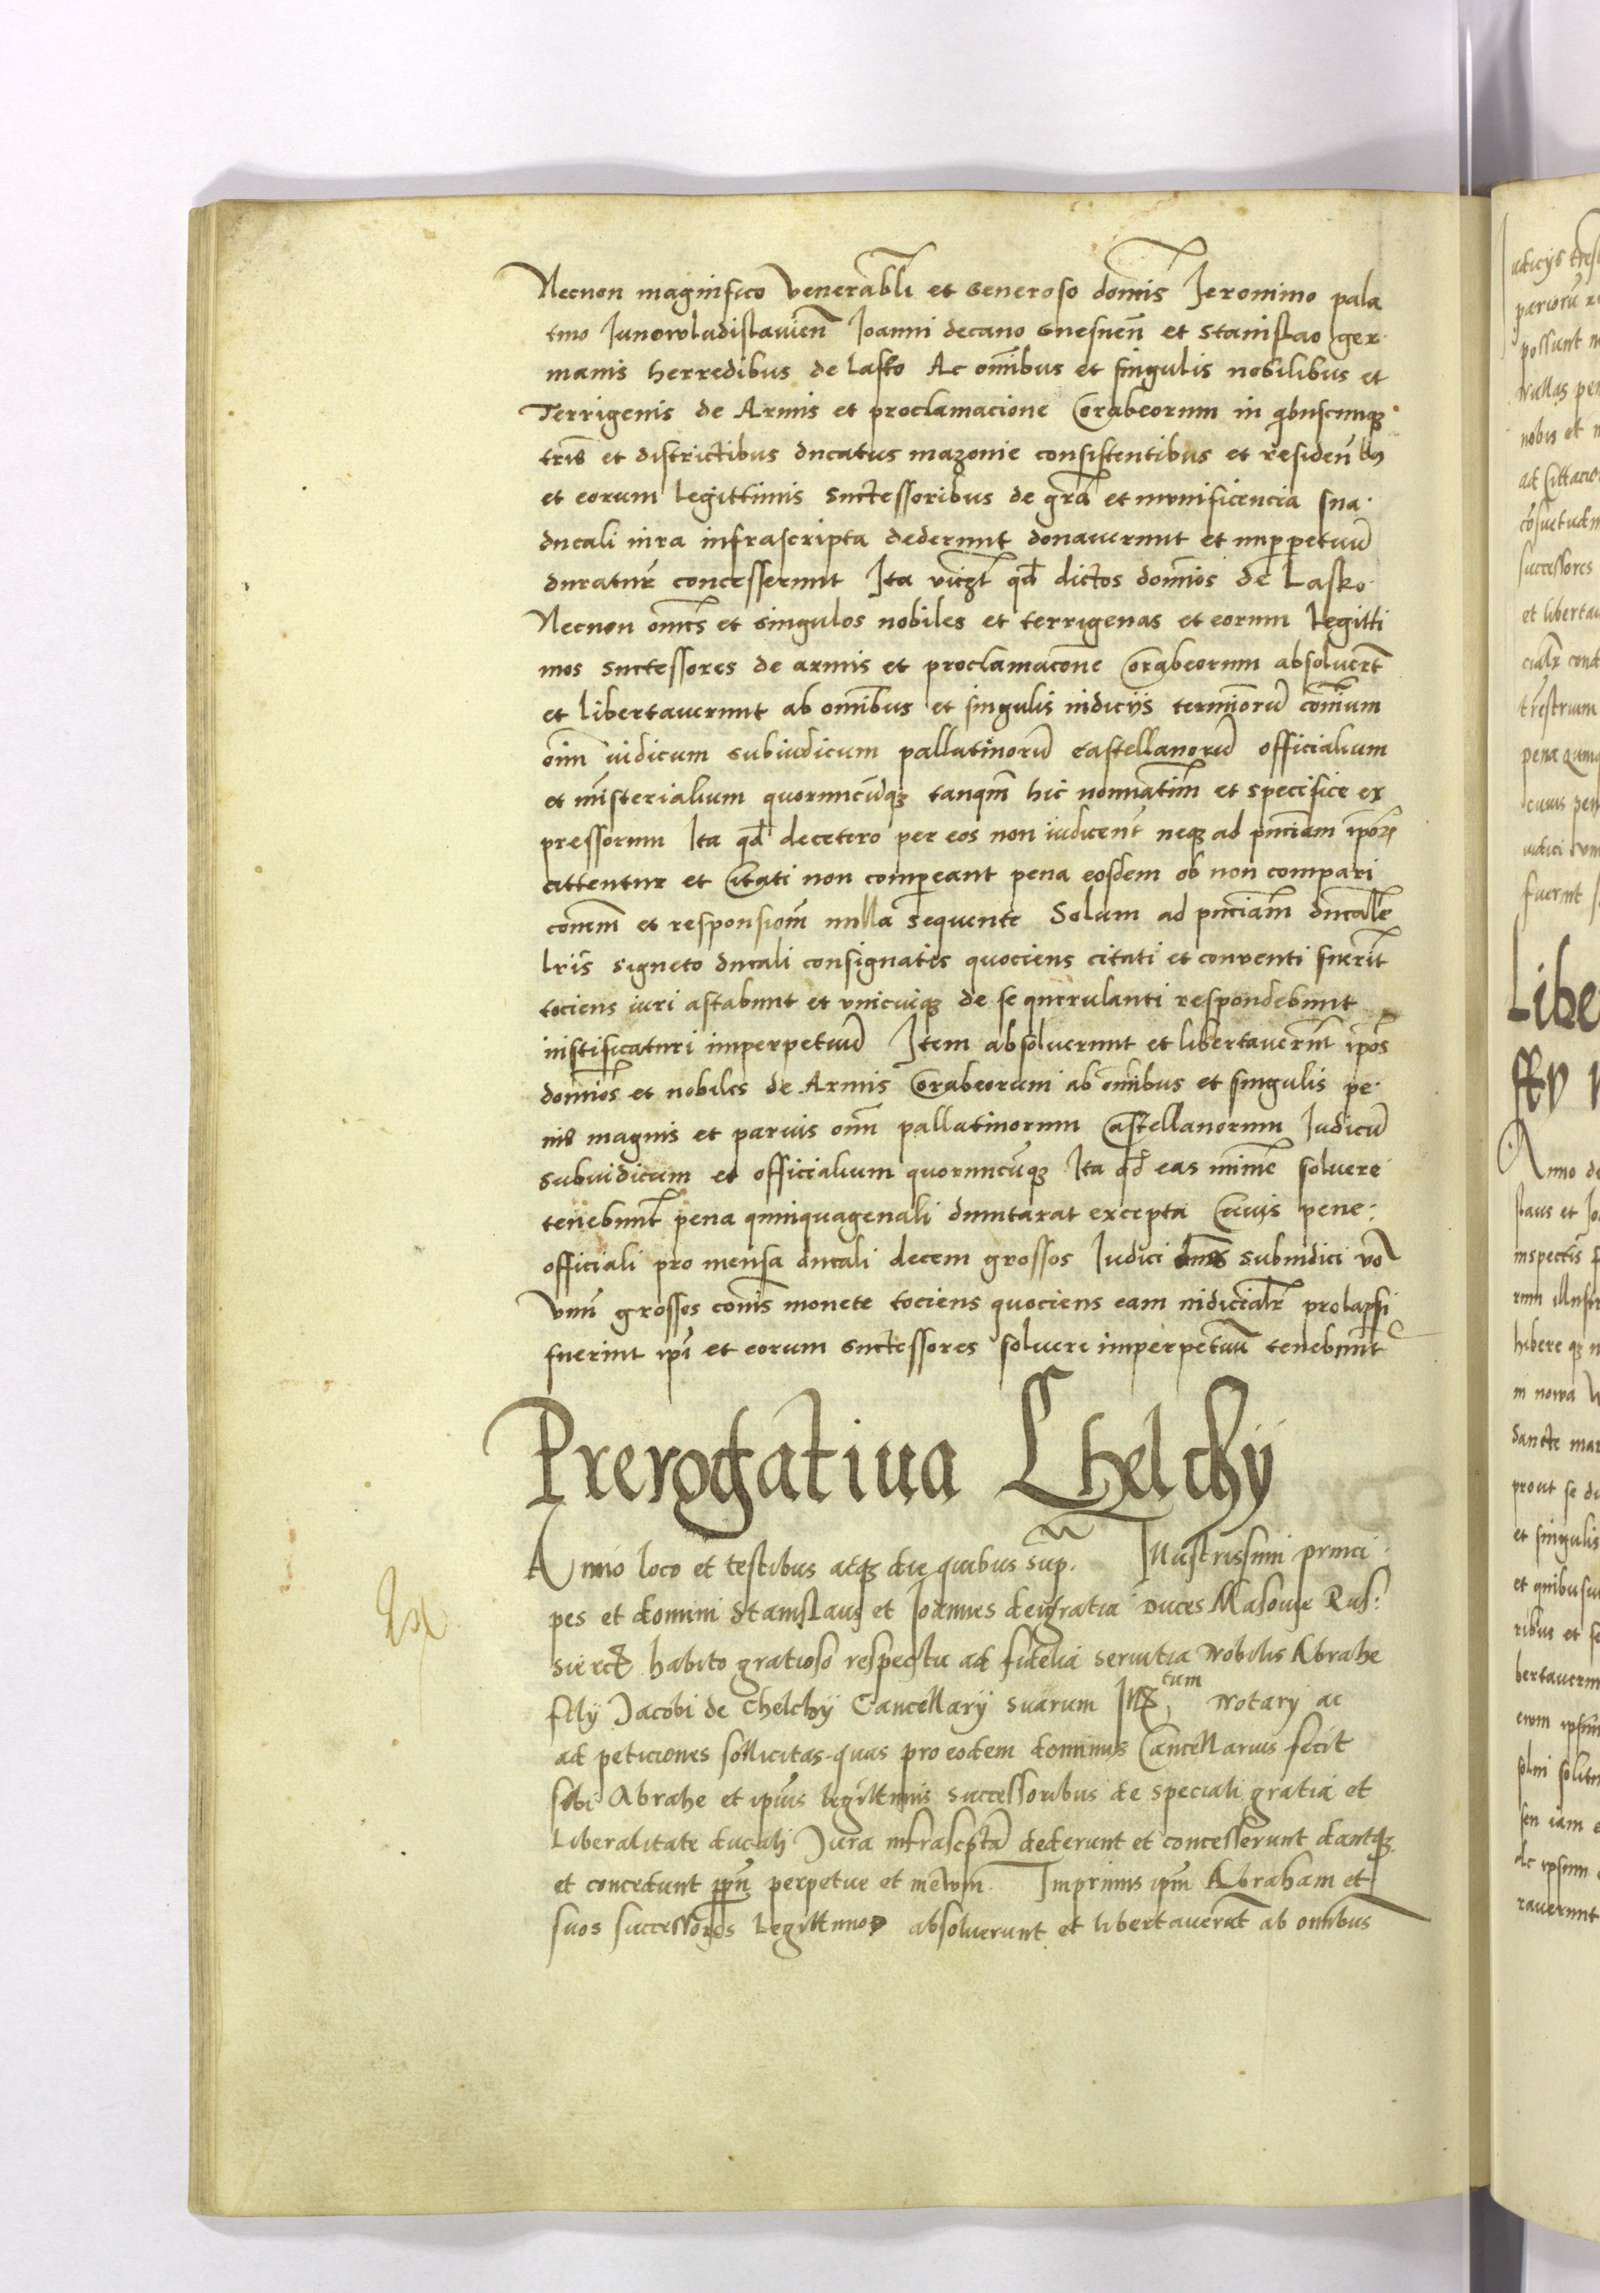 Necnon magnifico venerabli et generoso domis Ieronimo pala
tino Iunowladislauien Ioanni decano Gnesnen et Stanislao ger
manis herredibus de lasko Ac omibus et singulis nobilibus et
Terrigenis de Armis et proclamacione Corabeorum in qbuscunq
tris et districtibus ducatus mazonie consistentibus et residen bus
et eorum legittimis Successoribus de gra et munificencia sua
ducali iura infrascripta dederunt donauerunt et imppetuu
duratur concesserunt Ita viczt qd dictos domios de Lasko
Necnon omes et singulos nobiles et terrigenas et eorum legitti
mos successores de armis et proclamacone Corabeorum absoluert
et libertauerunt ab omibus et singulis iudicys terminoru comium
oim iudicum subiudicum pallatinoru castellanoru officialium
et misterialium quorumcuq tanqm hic nominatim et specifice ex
pressorum Ita qd decetero per eos non iudicent neq ad pnciam ipor
cittentur et Citati non compeant pena eosdem ob non compari
conem et responsiom nulla sequente Solum ad pnciam ducale
lris signeto ducali consignatis quociens citati et conuenti fuerit
tociens iuri astabunt et vnicuiq de se querulanti respondebunt
iustificaturi imperpetuu Item absoluerunt et libertauerunt ipos
domios et nobiles de Armis Corabeorum ab omibus et singulis pe
nis magnis et paruis oim pallatinorum Castellanorum Iudicu
subiudicum et officialium quorumcuq Ita qd eas minime soluere
tenebunt pena quinquagenali dumtaxat excepta Cuius pene
officiali pro mensa ducali decem grossos Iudici subiudici vo
vnu grossos comis monete tociens quociens eam iudicialr prolapsi
fuerint ipi et eorum successores soluere imperpetuu tenebunt
Prerogatiua Chelchy
Anno loco et testibus atq die quibus sup. Illustrissimi princi
pes et domini Stanislaus et Joannes dei gratia Duces Masouie Rus
sie etc habito gratioso respectu ad fidelia seruitia Nobilis Abrahe
filij Jacobi de Chelchy Cancellarij suarum Ill tum Notarij ac
ad peticiones sollicitas quas pro eodem dominus Cancellarius fecit
sibi Abrahe et ipius legittimis successoribus de speciali gratia et
Liberalitate ducali Jura infrascpta dederunt et concesserunt dantq
et concedunt ppn perpetue et in ewm. Imprimis ipm Abraham et
suos successores Legittimos absoluerunt et libertauerut ab omnibus